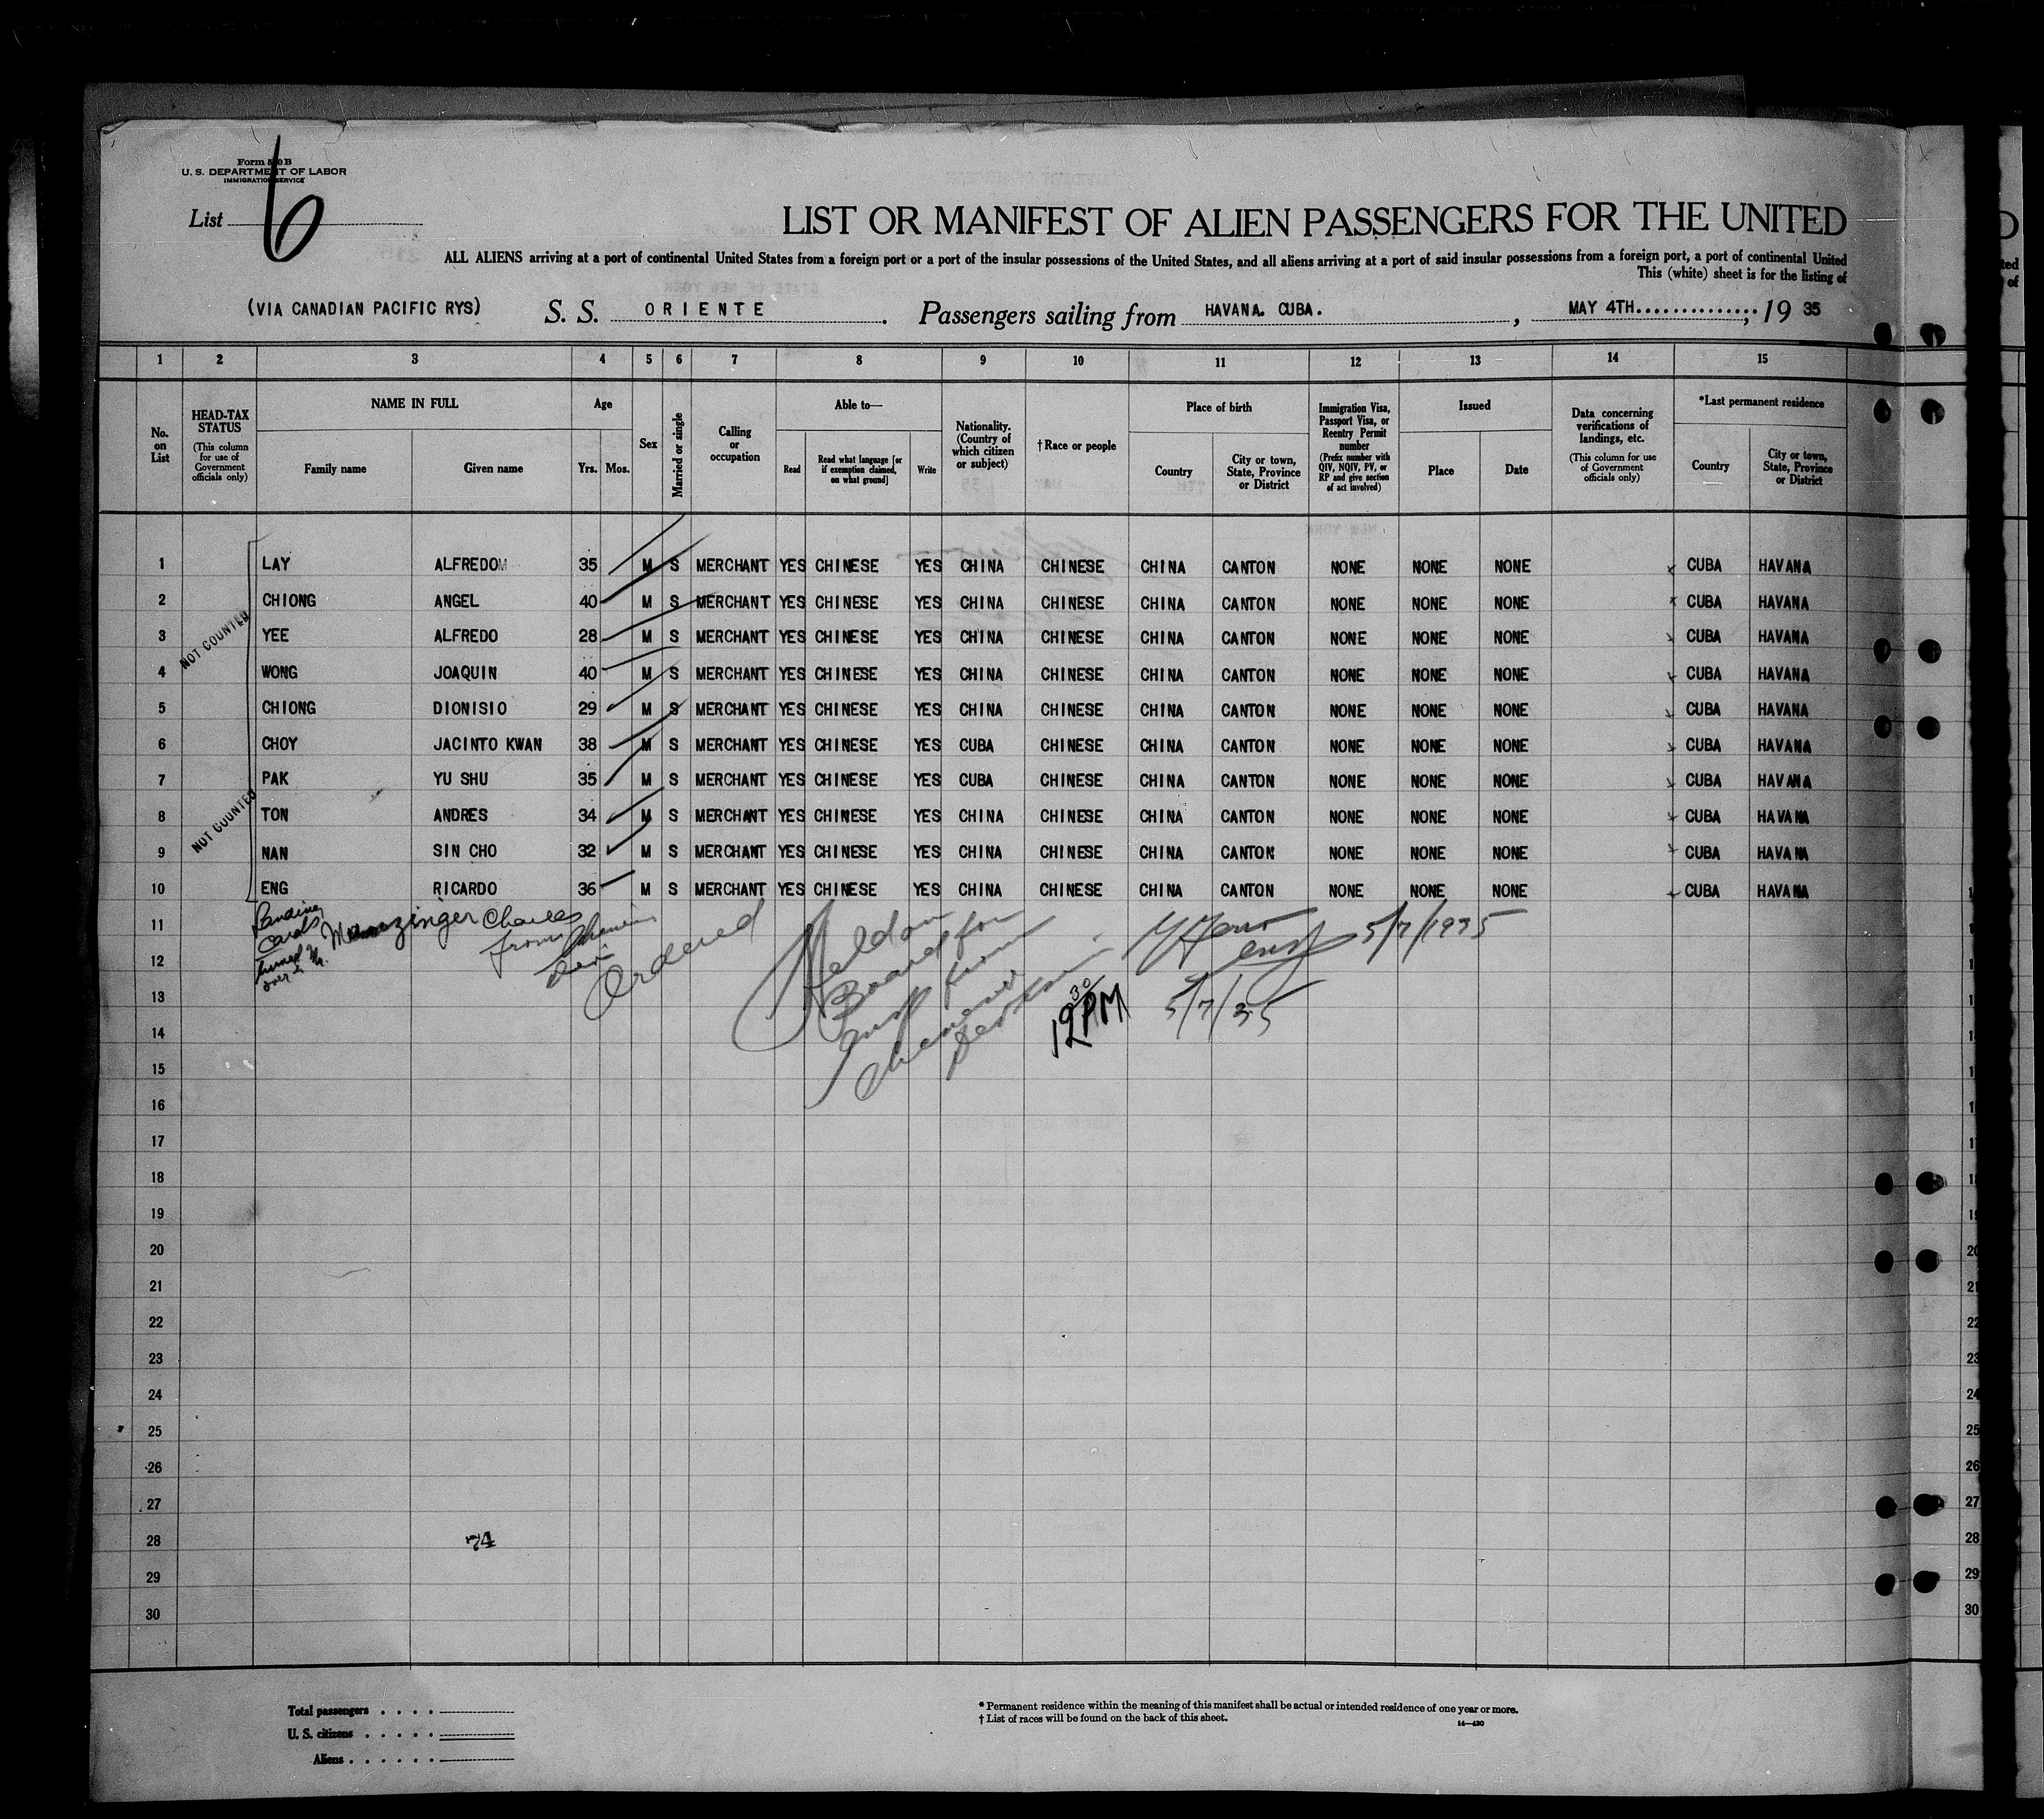 Form 500 B
U. S. DEPARTMENT OF LABOR
IMMIGRATION SERVICE
List 6
LIST OR MANIFEST OF ALIEN PASSENGERS FOR THE UNITED
ALL ALIENS arriving at a port of continental United States from a foreign port or a port of the insular possessions of the United States, and all aliens arriving at a port of said insular possessions from a foreign port, a port of continental United
This (white) sheet is for the listing of
(VIA CANADIAN PACIFIC RYS) S. S. ORIENTE. Passengers sailing from HAVANA. CUBA. , MAY 4TH.............., 19 35
1 2 3 4 5 6 7 8 9 10 11 12 13 14 15
No. on List
HEAD-TAX STATUS (This column for use of Government officials only)
NAME IN FULL Family name Given name
Age Yrs. Mos.
Sex
Married or single
Calling or occupation
Able to— Read Read what language [or if exemption claimed, on what ground] Write
Nationality. (Country of which citizen or subject)
†Race or people
Place of birth Country City or town, State, Province or District
Immigration Visa, Passport Visa, or Reentry Permit number (Prefix number with QIV, NQIV, PV, or RP and give section of act involved)
Issued Place Date
Data concerning verifications of landings, etc. (This column for use of Government officials only)
*Last permanent residence Country City or town, State, Province or District
1 LAY ALFREDO 35 M S MERCHANT YES CHINESE YES CHINA CHINESE CHINA CANTON NONE NONE NONE CUBA HAVANA
2 CHIONG ANGEL 40 M S MERCHANT YES CHINESE YES CHINA CHINESE CHINA CANTON NONE NONE NONE CUBA HAVANA
3 YEE ALFREDO 28 M S MERCHANT YES CHINESE YES CHINA CHINESE CHINA CANTON NONE NONE NONE CUBA HAVANA
4 WONG JOAQUIN 40 M S MERCHANT YES CHINESE YES CHINA CHINESE CHINA CANTON NONE NONE NONE CUBA HAVANA
5 CHIONG DIONISIO 29 M S MERCHANT YES CHINESE YES CHINA CHINESE CHINA CANTON NONE NONE NONE CUBA HAVANA
6 CHOY JACINTO KWAN 38 M S MERCHANT YES CHINESE YES CUBA CHINESE CHINA CANTON NONE NONE NONE CUBA HAVANA
7 PAK YU SHU 35 M S MERCHANT YES CHINESE YES CUBA CHINESE CHINA CANTON NONE NONE NONE CUBA HAVANA
8 TON ANDRES 34 M S MERCHANT YES CHINESE YES CHINA CHINESE CHINA CANTON NONE NONE NONE CUBA HAVANA
9 NAN SIN CHO 32 M S MERCHANT YES CHINESE YES CHINA CHINESE CHINA CANTON NONE NONE NONE CUBA HAVANA
10 ENG RICARDO 36 M S MERCHANT YES CHINESE YES CHINA CHINESE CHINA CANTON NONE NONE NONE CUBA HAVANA
NOT COUNTED
NOT COUNTED
11
12
13
14
15
16
17
18
19
20
21
22
23
24
25
26
27
28
29
30
Landing
Cards
turned
over to Mr.
from
Ordered
Board for
from
5/7/1935
12 30 PM 5/7/35
74
Total passengers
U. S. citizens
Aliens
* Permanent residence within the meaning of this manifest shall be actual or intended residence of one year or more.
† List of races will be found on the back of this sheet.
14—430